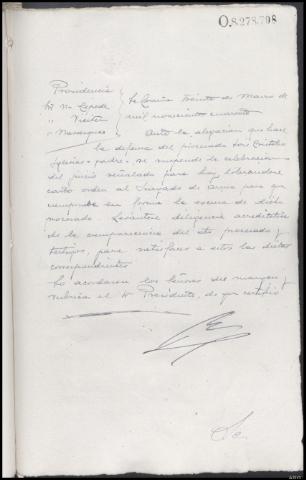 O.8.278.798
Providencia
La Coruña treinta de Marzo de
mil novecientos cuarenta
Ante la alegación que hace
la defensa del procesado José
Iglesias - padre - se suspende la celebración
del juicio señalado para hoy librandose
carta orden al Juzgado de para que
en forma la de dicho
procesado. Levántese diligencia acreditativa
de la comparecencia del procesado y
testigos, para satisfacer a estos las dietas
correspondientes
Lo acordaron los Señores del margen y
rubrica el Sr Presidente, de que certifico